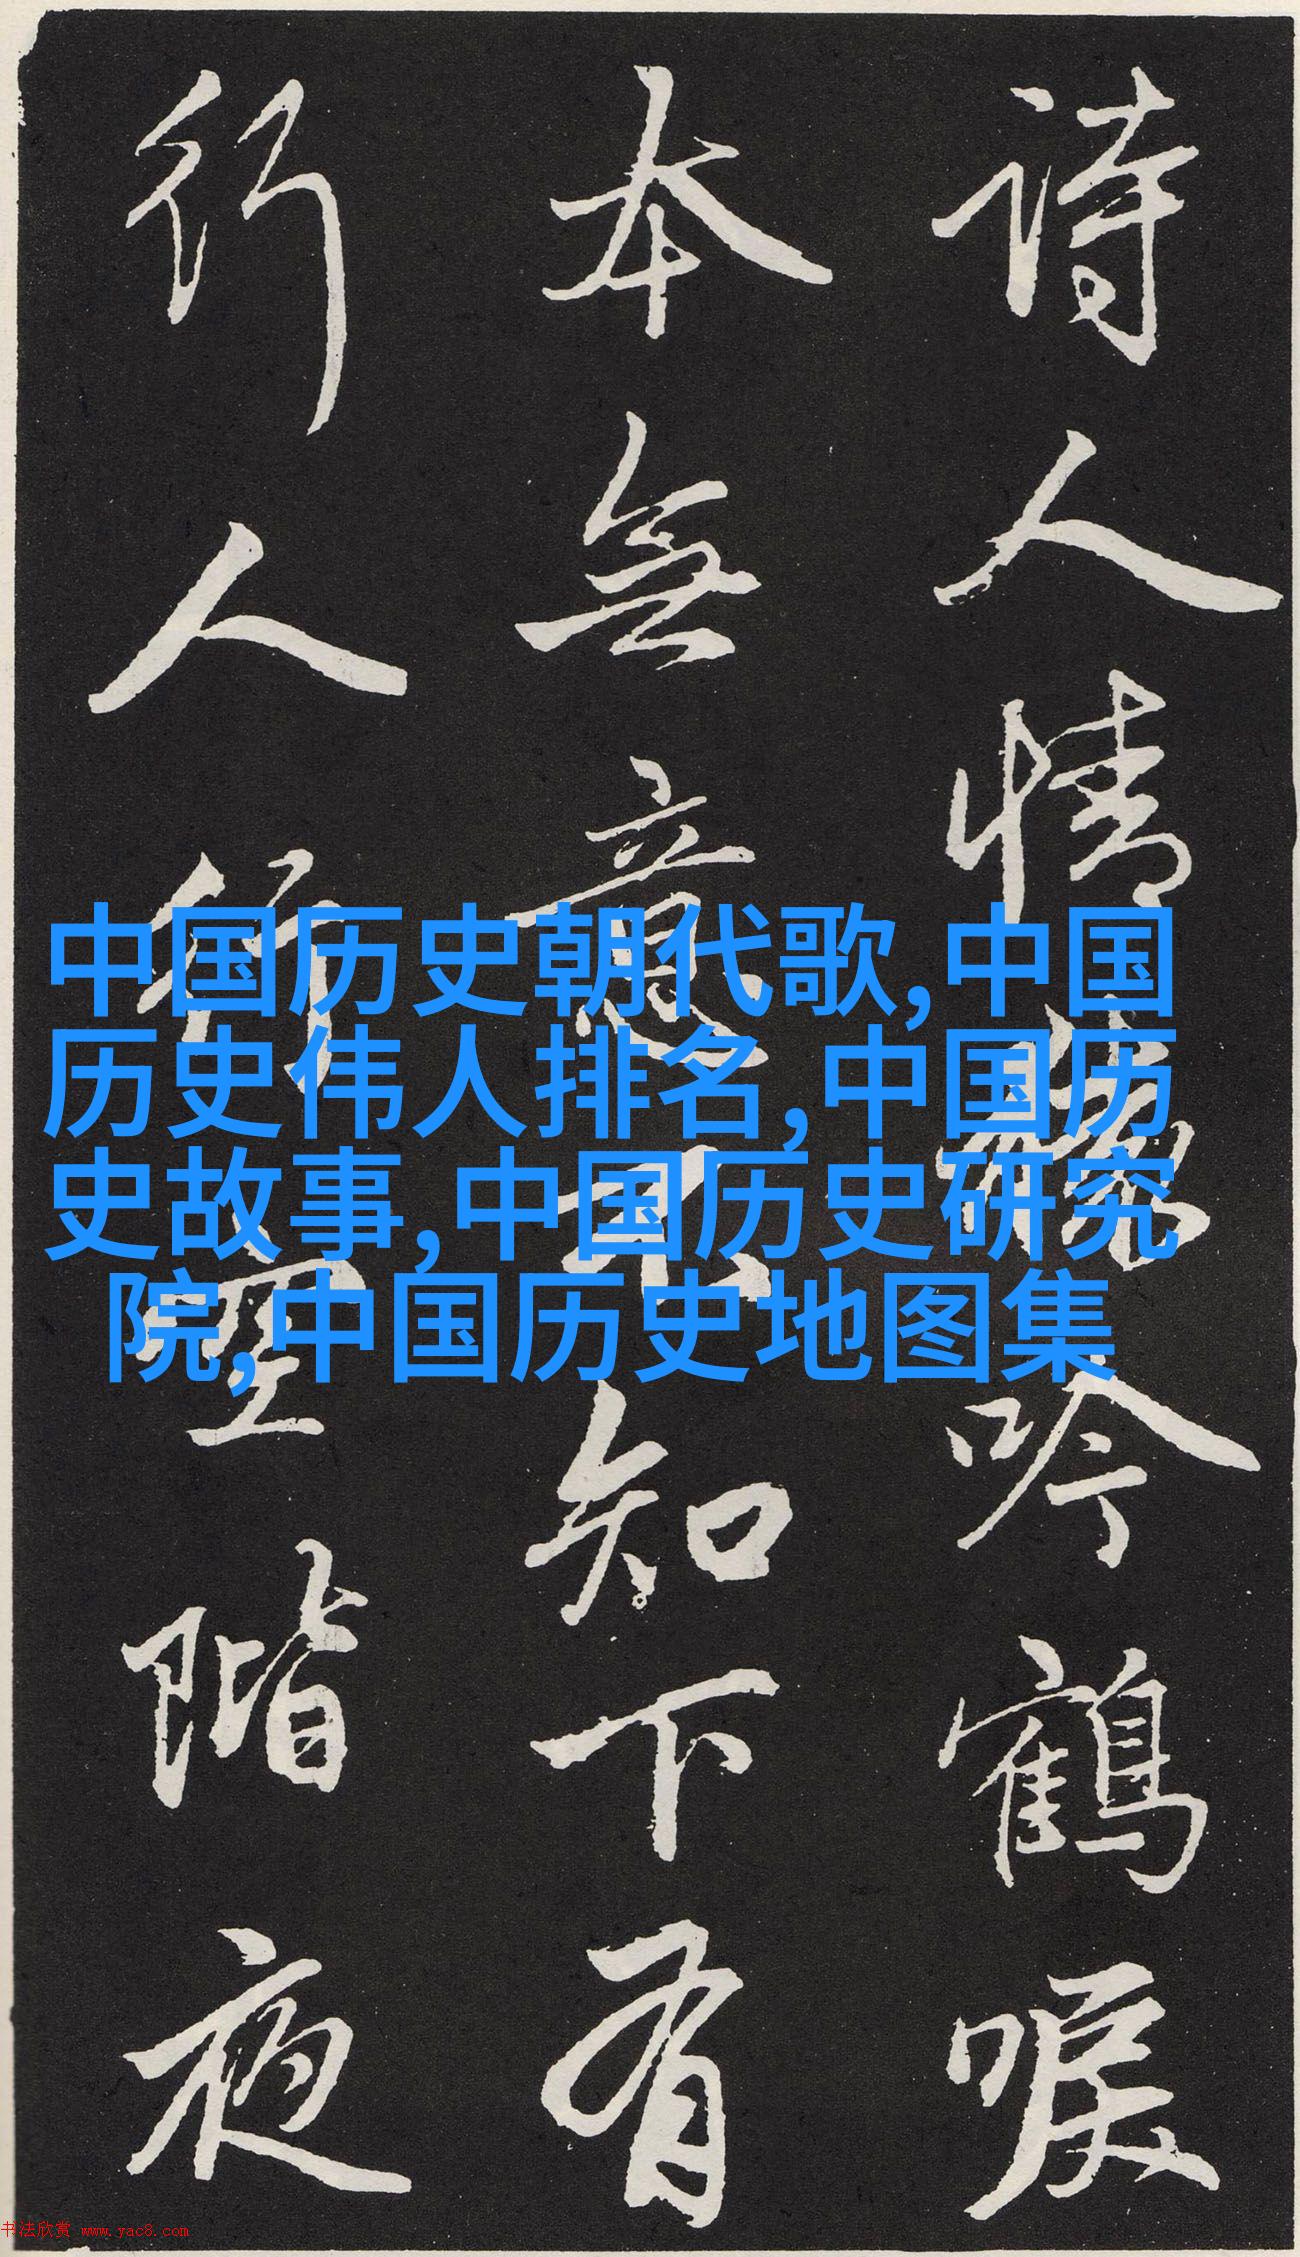 中国历史朝代歌,中国
历史伟人排名,中国历
史故事,中国历史研究
院,中国历史地图集
詩人情吟鶴唳
本無意不知下有
行人行空階夜
书法欣赏 www.yac8.com